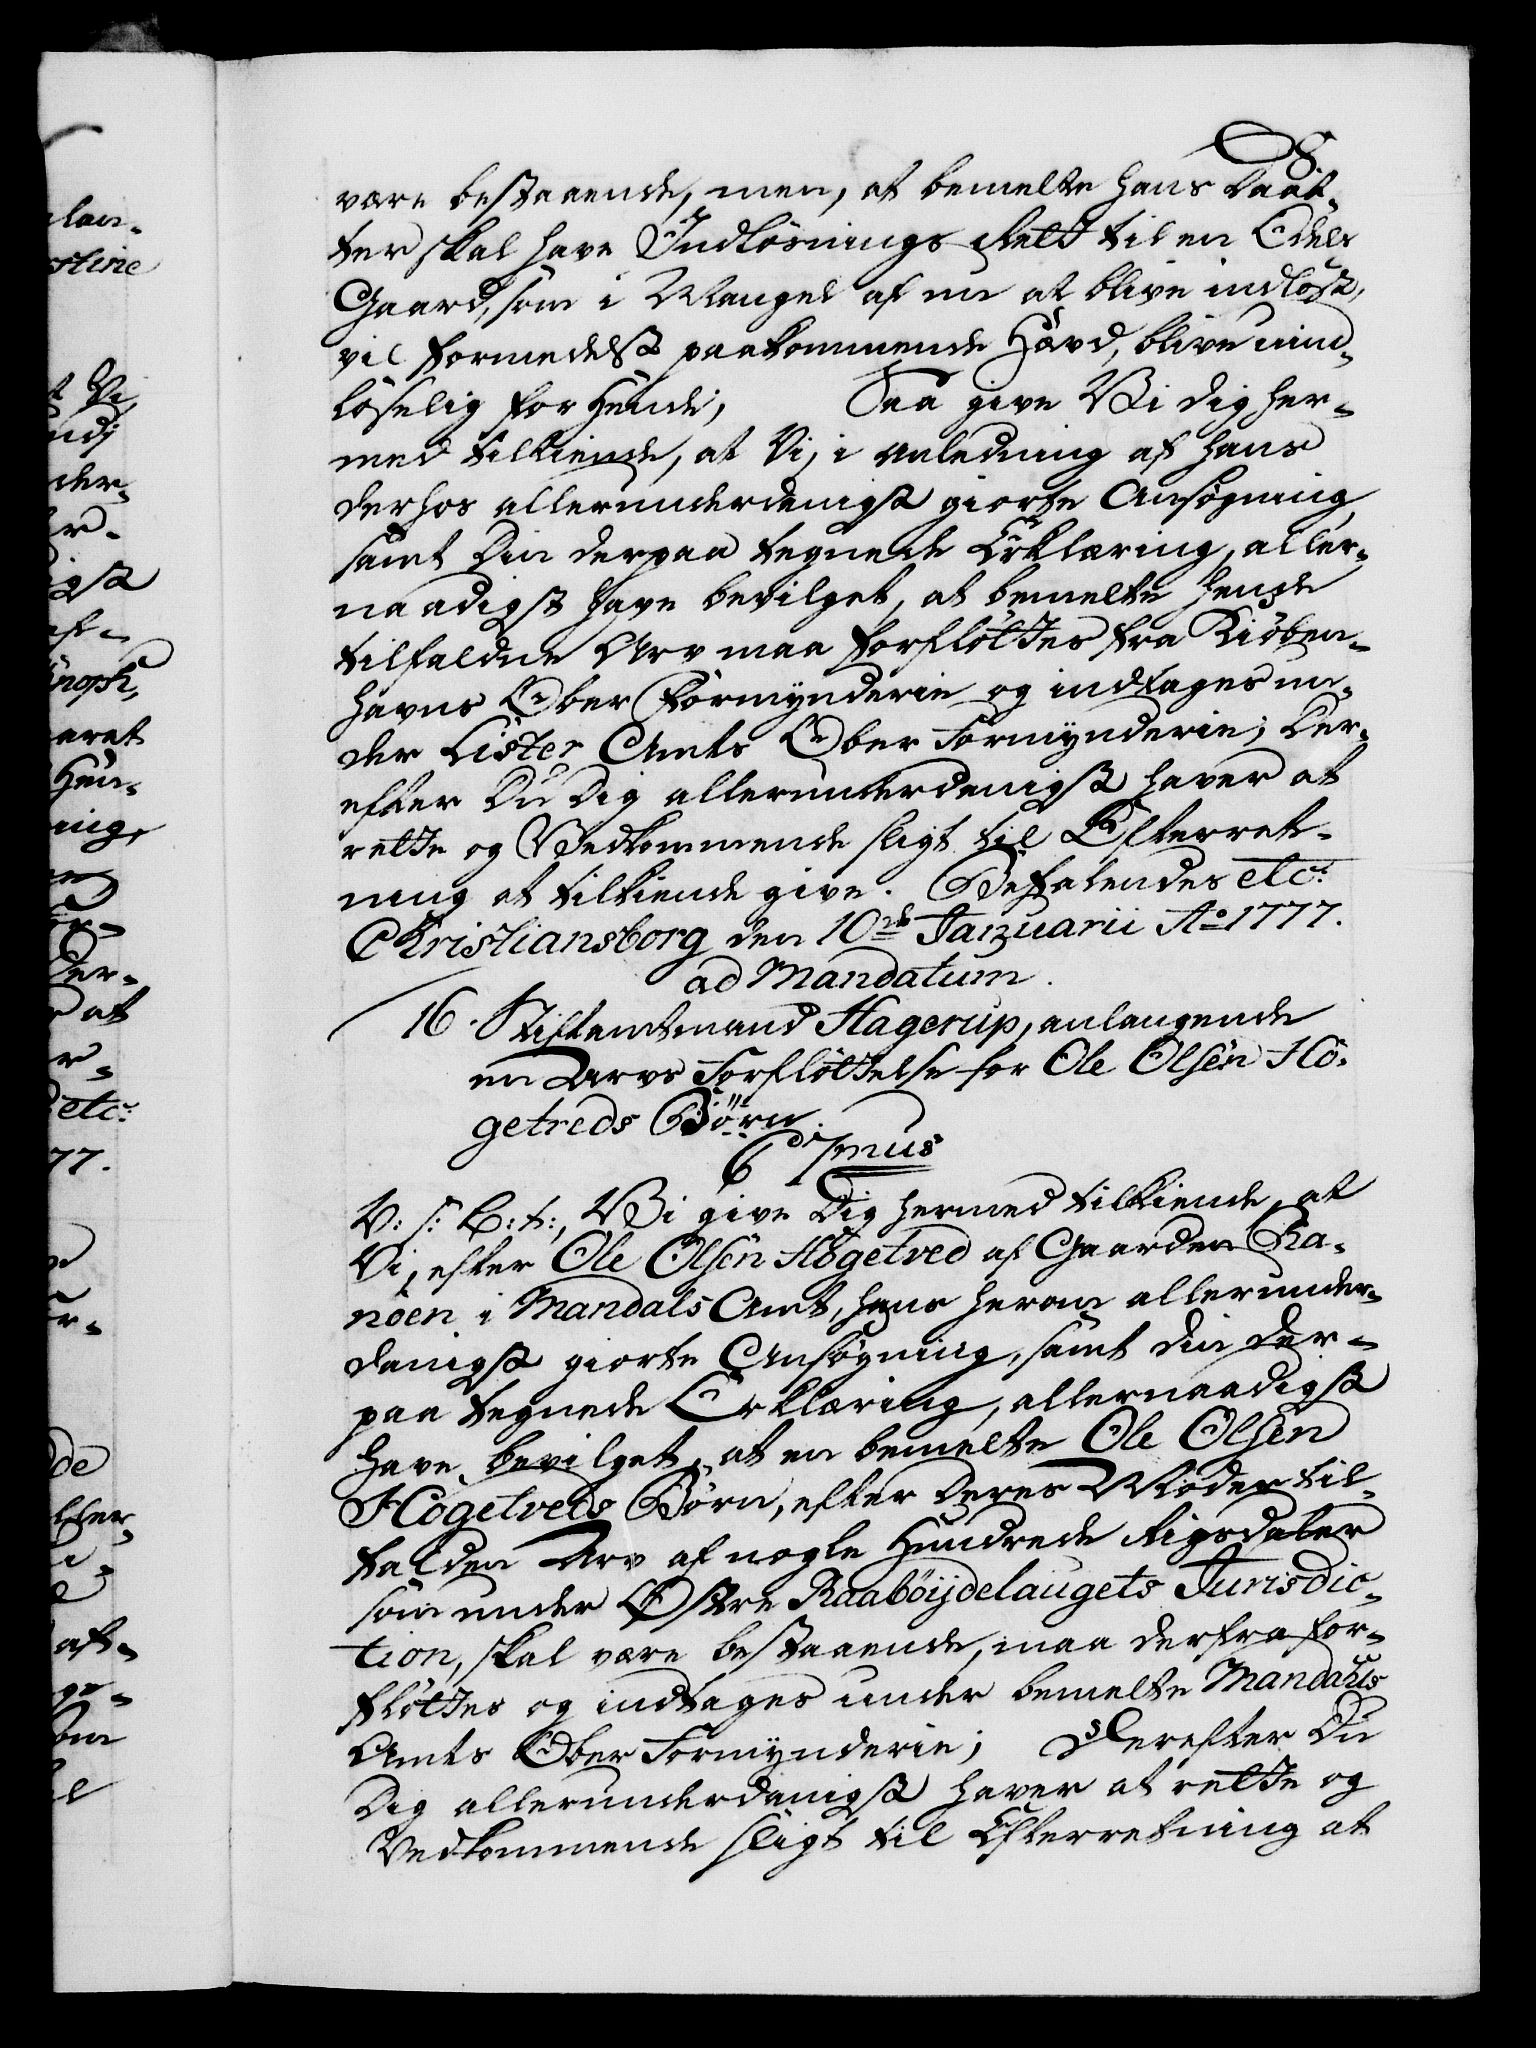 8.
være bestaaende, men, at bemelte hans Daat-
ter skal have Indløsnings Rett til en Odels
Gaard, som i Mangel af nu at blive indløst,
vil formedelst paakommende Hævd, blive uind-
løselig for Hende; Saa give Vi dig her-
med tilkiende, at Vi, i Anledning af hans
derhos allerunderdanigst giorte Ansøgning,
samt Din derpaa tegnede Erklæring, aller-
naadigst have bevilget, at bemelte Hende
tilfaldne Arv maa forflöttes fra Kiöben-
havns Ober Formynderie og indtages un-
der Lister Amts Ober Formynderie; Der-
efter Du Dig allerunderdanigst haver at
rette og Vedkommende sligt til Efterret-
ning at tilkiende give. Befalendes etc:
Christiansborg den 10de Januarii Ao 1777.
ad Mandatum.
16. Stiftamtmand Hagerup, anlangende
en Arvs Forflöttelse for Ole Olsön Hö-
getreds Børn.
C 7mus
V: s: G: t:, Vi give Dig hermed tilkiende, at
Vi, efter Ole Olsön Högetved af Gaarden Ra-
nöen i Mandals Amt, hans herom allerunder-
danigst giorte Ansøgning, samt din der-
paa tegnede Erklæring, allernaadigst
have bevilget, at en bemelte Ole Olsön
Högetveds Börn, efter Deres Moder til-
falden Arv af nogle Hundrede Rigsdaler
som under Østre Raaböijdelaugets Jurisdic-
tion, skal være bestaaende, maa derfra for-
flöttes og indtages under bemelte Mandahls
Amts Ober Formynderie; Derefter Du
Dig allerunderdanigst haver at rette og
Vedkommende sligt til Efterretning at